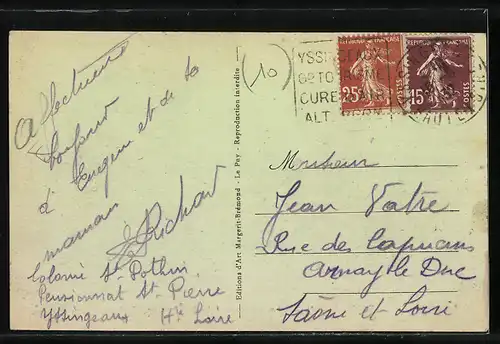 Affectueux
souvenir
d'Eugène et de ta
maman
E Richard
Colonie St Pothin
Pensionnat St. Pierre
Yssingeaux Hte Loire
Editions d'Art Margerit-Brémond - Le Puy - Reproduction interdite -
(10)
YSSINGEAUX
CURE
ALT
REPUBLIQUE FRANÇAISE
25c
POSTES
REPUBLIQUE FRANÇAISE
15c
POSTES
Monsieur
Jean Vatre
Rue des Capucins
Arnay le Duc
Saône et Loire